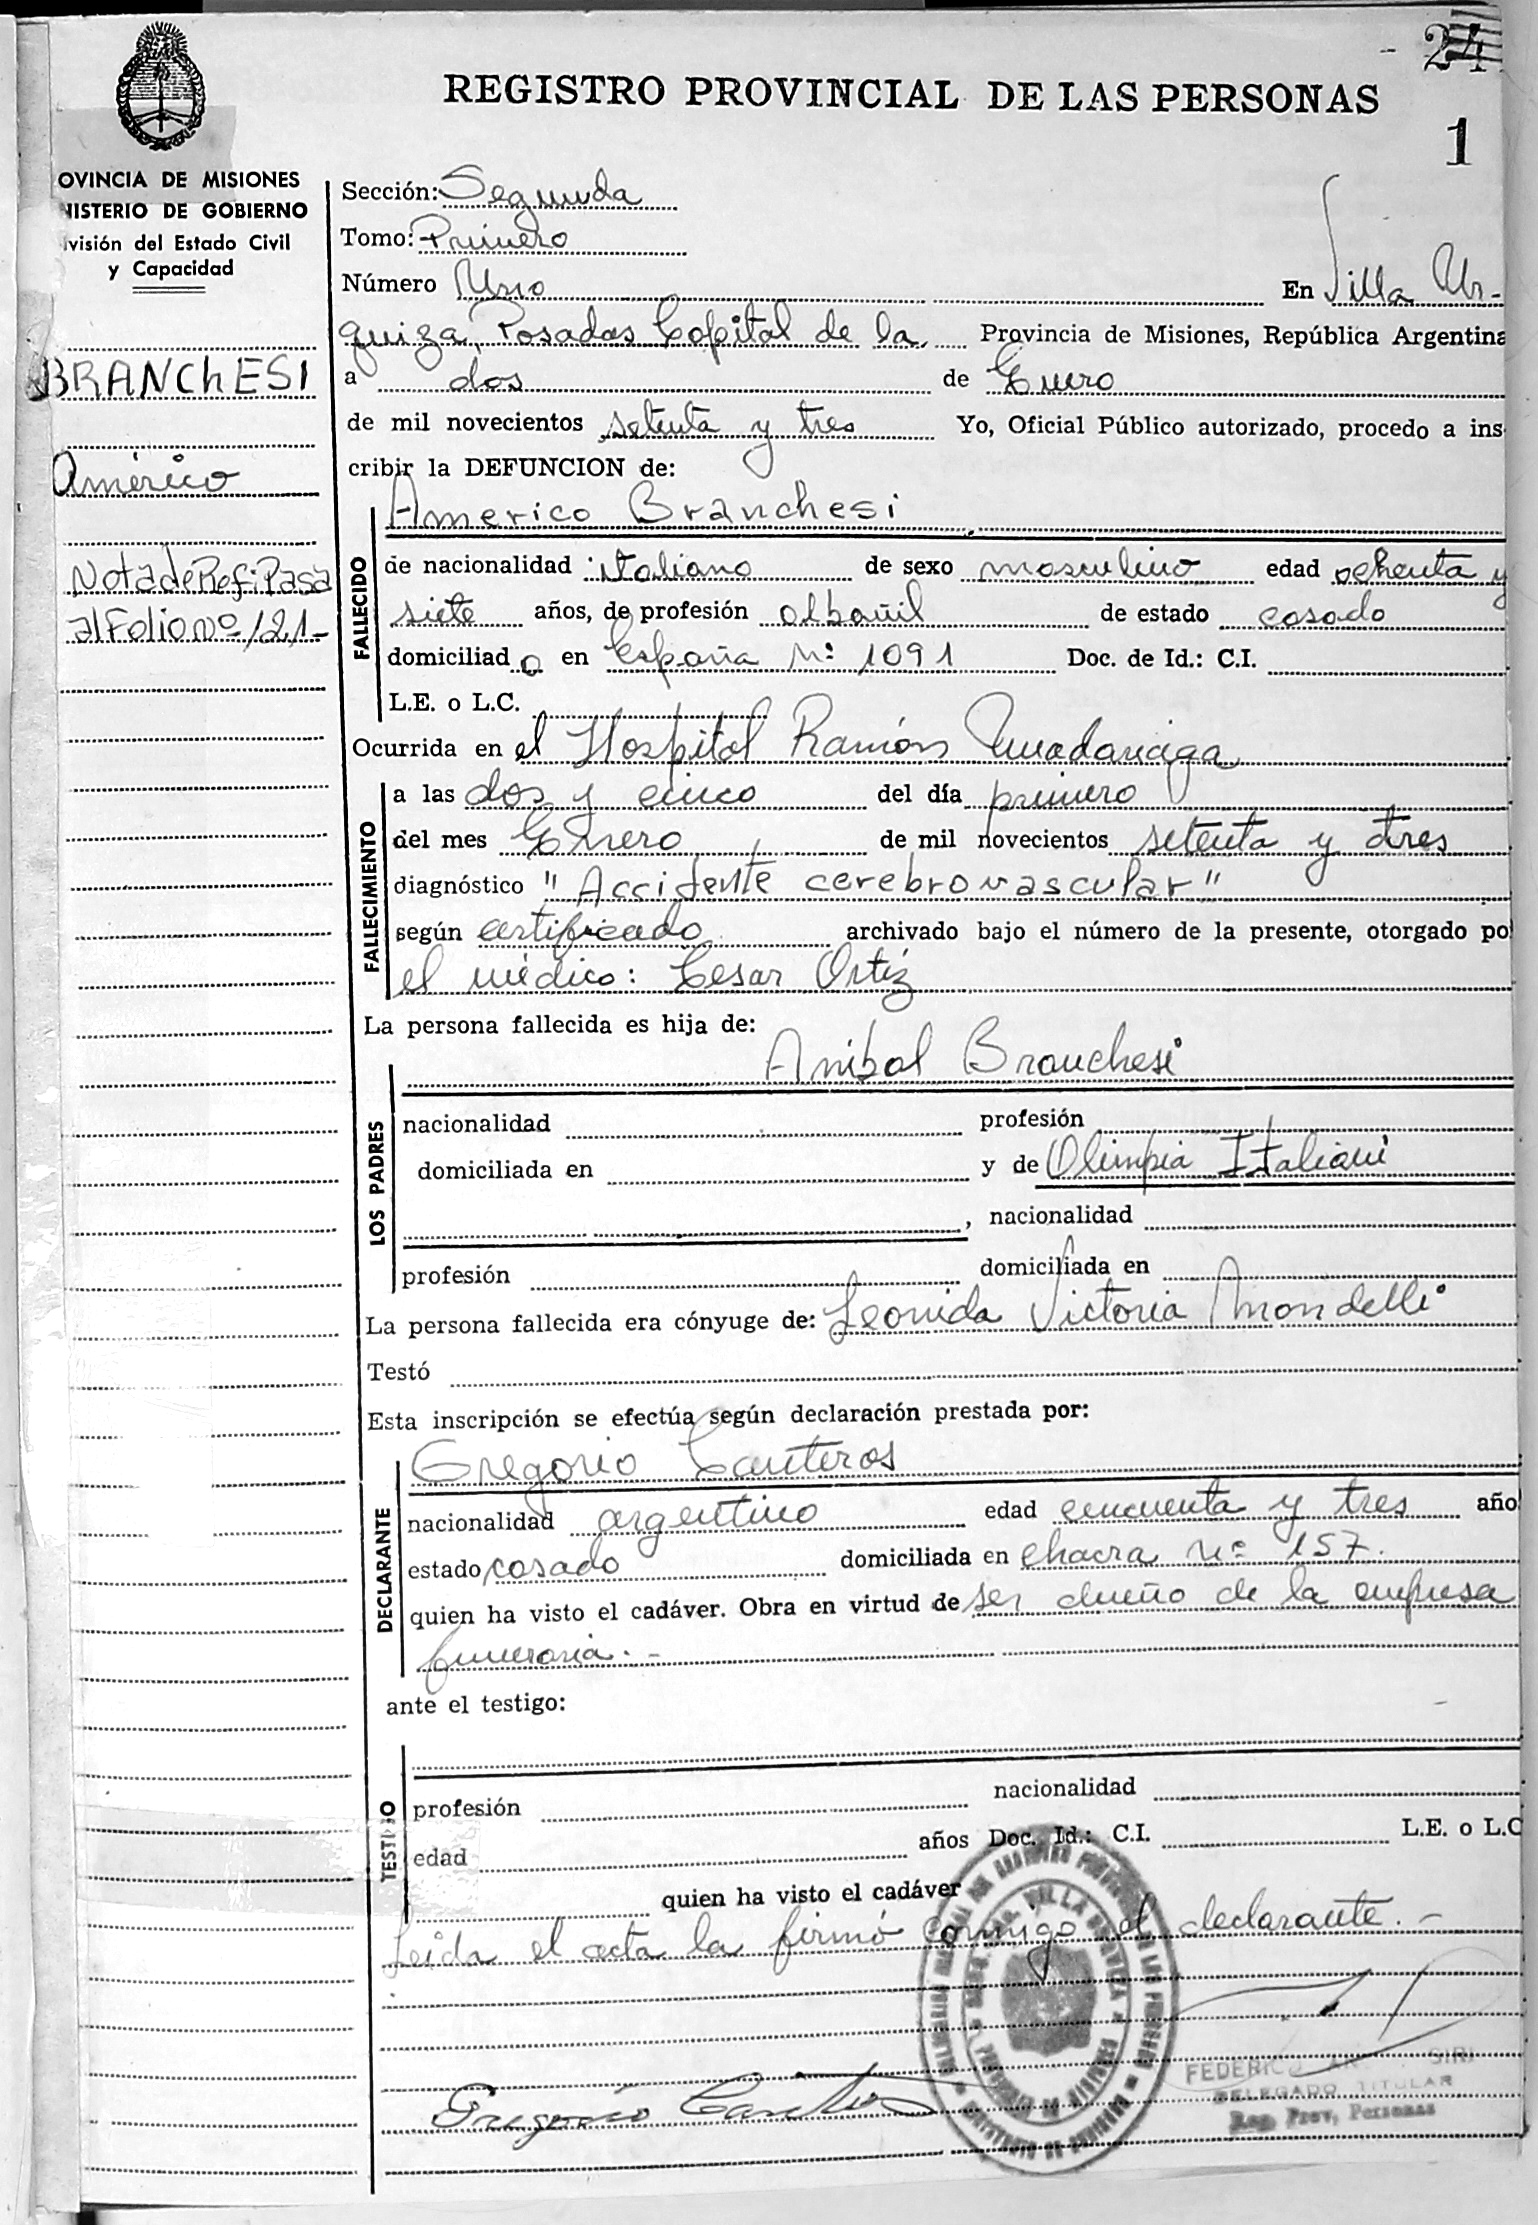 24
REGISTRO PROVINCIAL DE LAS PERSONAS
1
OVINCIA DE MISIONES
NISTERIO DE GOBIERNO
ivisión del Estado Civil
y Capacidad
BRANCHESI
Américo
Nota de Ref: Pasa
al Folio nº 121-
Sección: Segunda
Tomo: Primero
Número Uno En Villa Ur-
quiza, Posadas Capital de la Provincia de Misiones, República Argentina
a dos de Enero
de mil novecientos setenta y tres Yo, Oficial Público autorizado, procedo a ins-
cribir la DEFUNCION de:
Americo Branchesi
FALLECIDO
de nacionalidad italiano de sexo masculino edad ochenta y
siete años, de profesión albañil de estado casado
domiciliado en España Nº 1091 Doc. de Id.: C.I.
L.E. o L.C.
Ocurrida en el Hospital Ramón Madariaga
FALLECIMIENTO
a las dos y cinco del día primero
del mes Enero de mil novecientos setenta y tres
diagnóstico "Accidente cerebrovascular"
según certificado archivado bajo el número de la presente, otorgado po
el médico: Cesar Ortiz
La persona fallecida es hija de:
Anibal Branchesi
LOS PADRES
nacionalidad profesión
domiciliada en y de Olimpia Italiani
, nacionalidad
profesión domiciliada en
La persona fallecida era cónyuge de: Leonida Victoria Mondelli
Testó
Esta inscripción se efectúa según declaración prestada por:
Gregorio Canteros
DECLARANTE
nacionalidad argentino edad cincuenta y tres año
estado casado domiciliada en chacra Nº 157.
quien ha visto el cadáver. Obra en virtud de ser dueño de la empresa
funeraria.-
ante el testigo:
TESTIGO
profesión nacionalidad
edad años Doc. Id.: C.I. L.E. o L.C
quien ha visto el cadáver
Leída el acta la firmó conmigo el declarante.-
Gregorio Canteros
FEDERICO SIRI
DELEGADO TITULAR
Reg. Prov. Personas